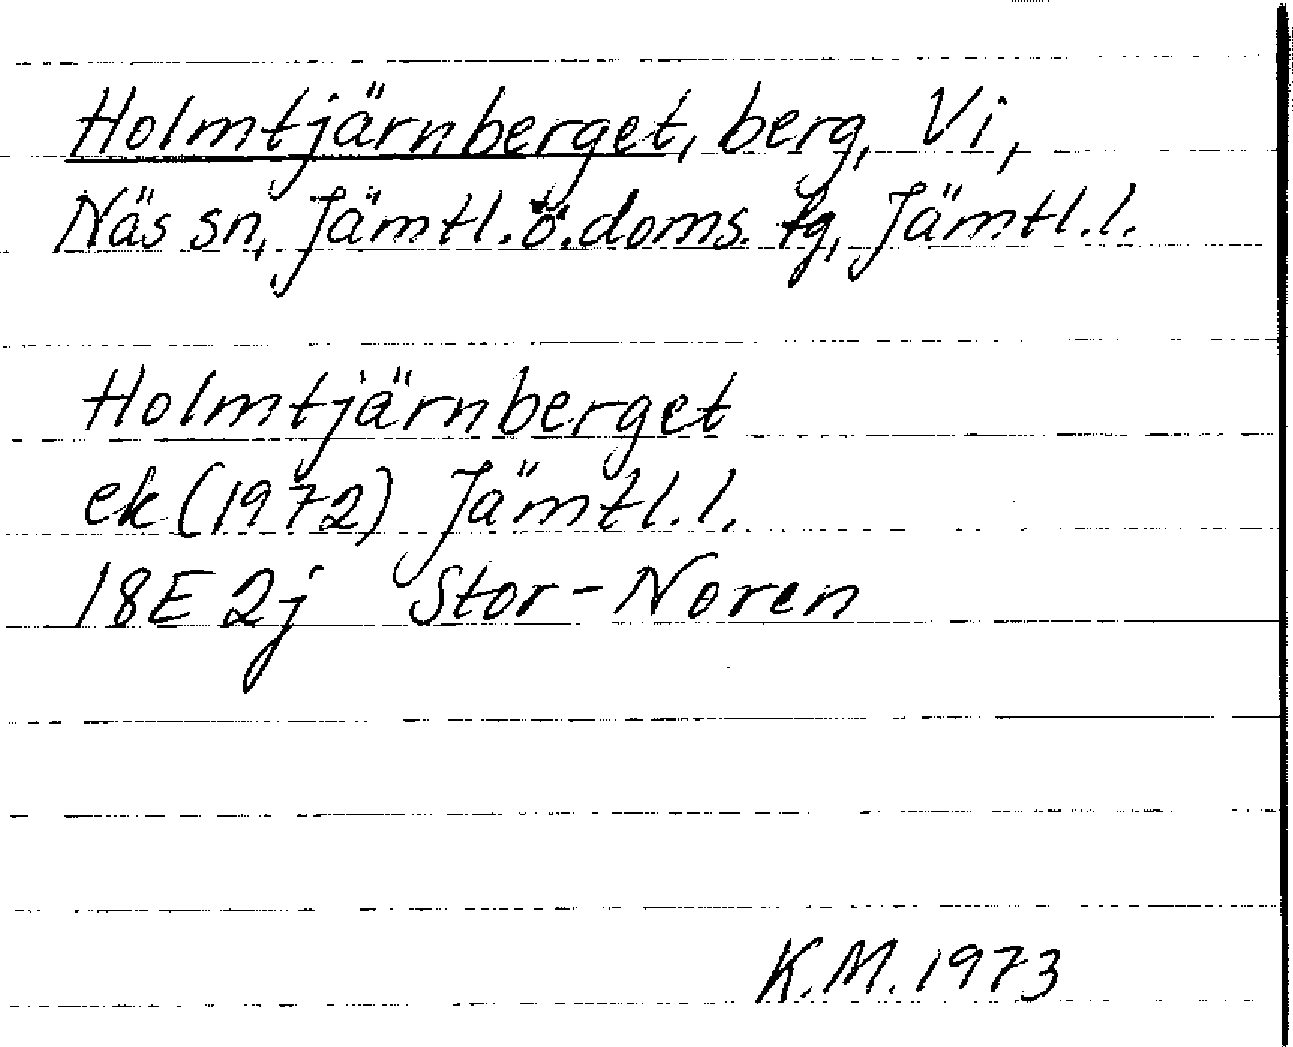 Holmtjärnberget, berg, Vi,
Näs sn, Jämtl.ö.doms. tg, Jämtl.l.
Holmtjärnberget
ek (1972) Jämtl.l.
18E 2j Stor-Noren
K.M. 1973